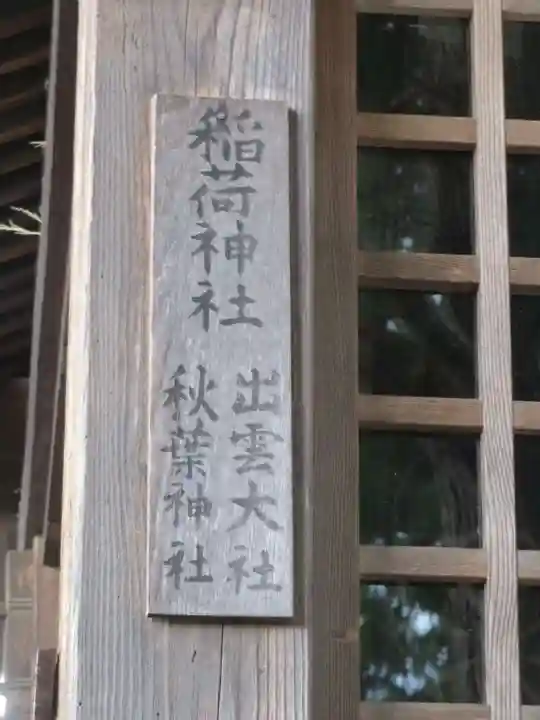 稲荷神社
出雲大社
秋葉神社